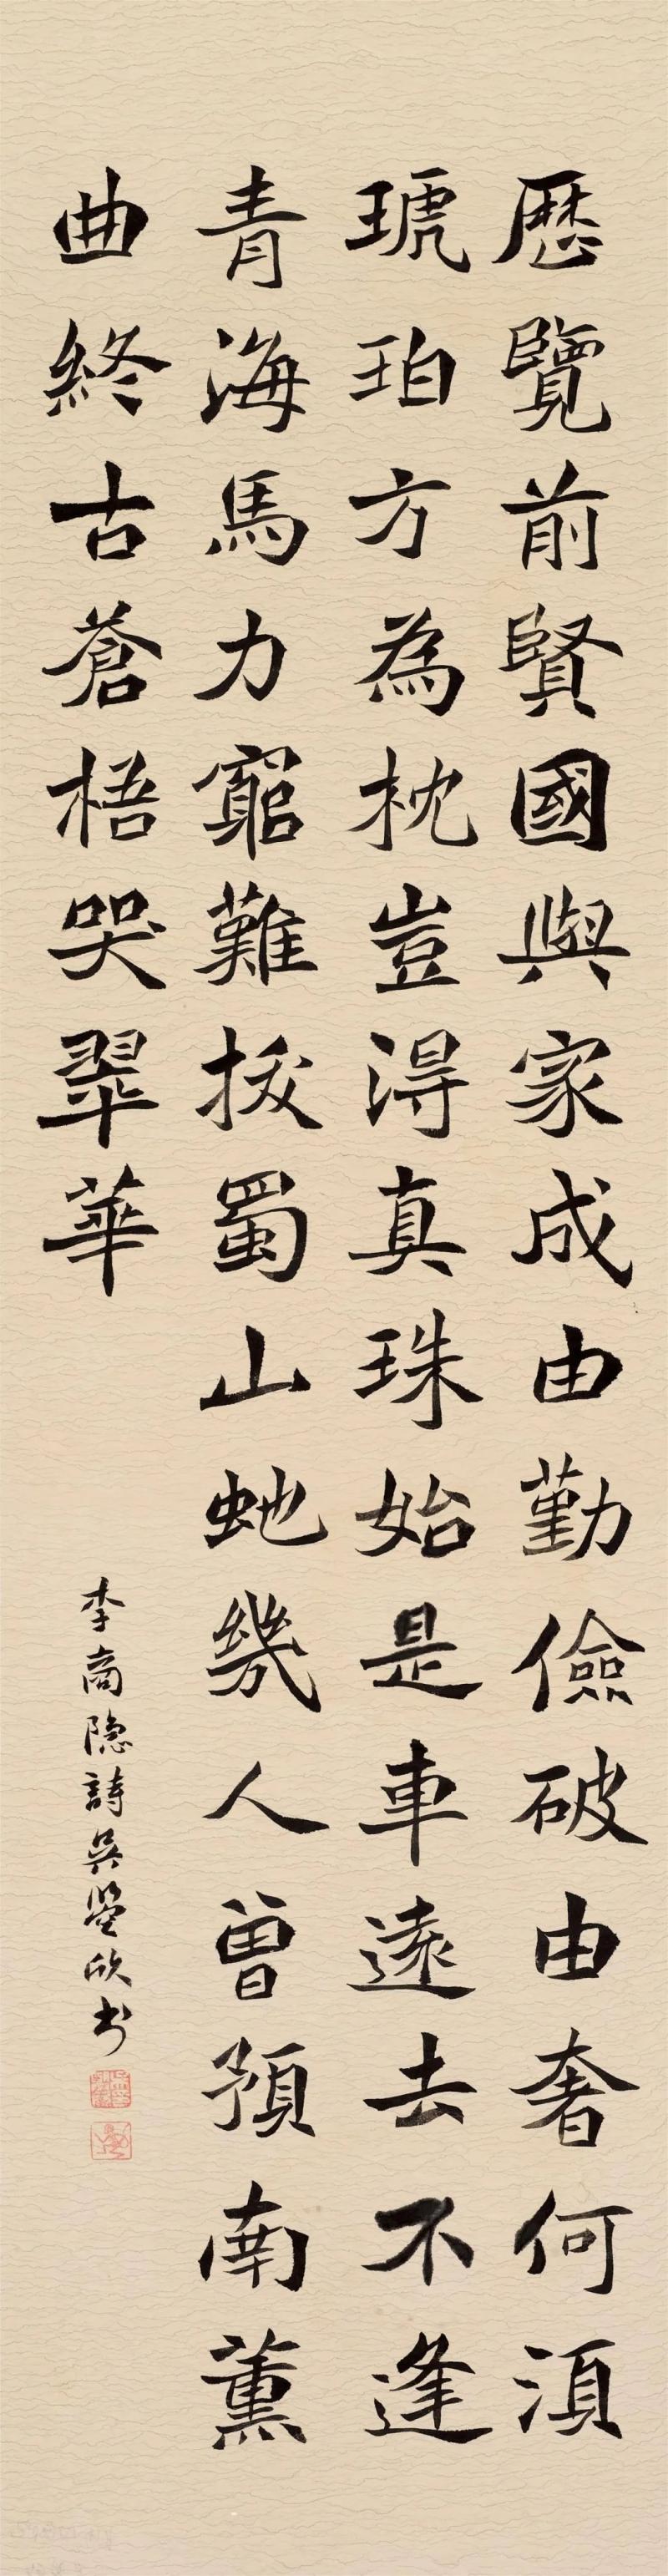 歷覽前賢國與家成由勤儉破由奢何須
琥珀方為枕豈得真珠始是車遠去不逢
青海馬力窮難拔蜀山虵幾人曾預南薰
曲終古蒼梧哭翠華
李商隐詩吳欣书